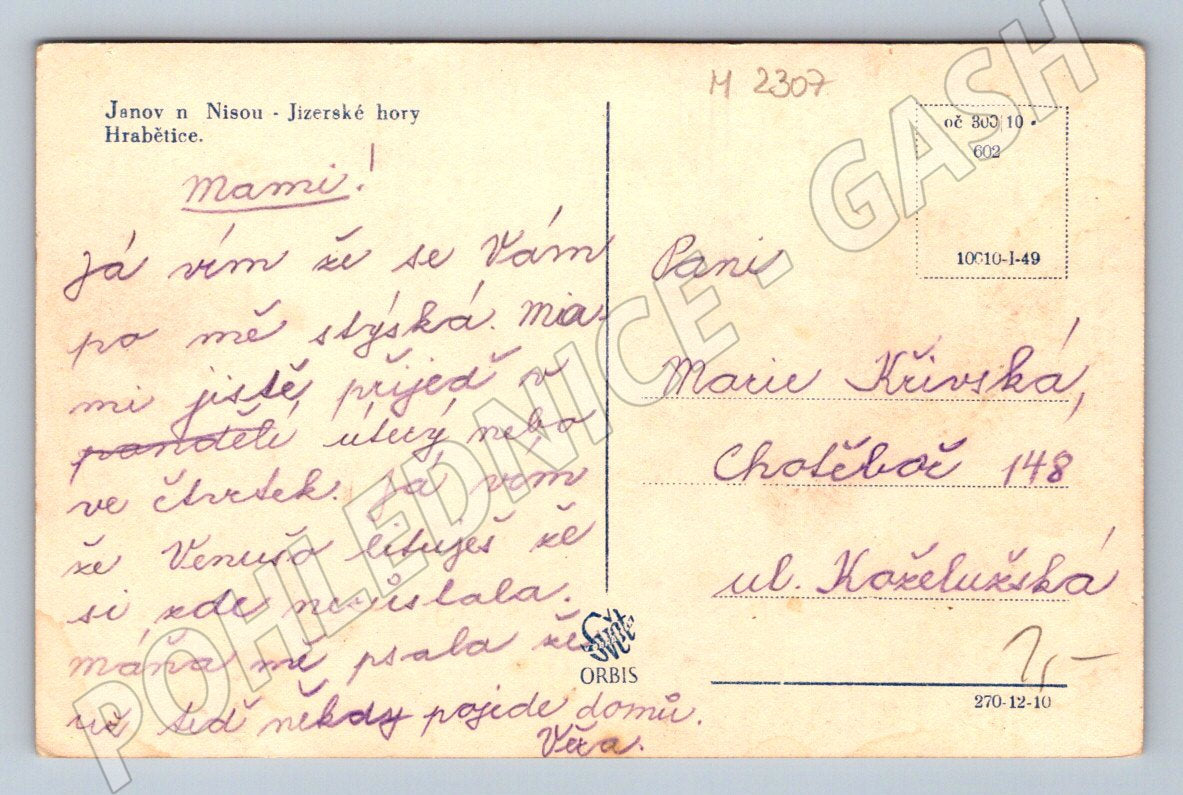 M 2307
Janov n Nisou - Jizerské hory
Hrabětice.
oč 300/10 •
602
10010-I-49
Mami!
Já vím že se Vám
po mě stýská. Mia-
mi jistě přijeď v
pondělí úterý nebo
ve čtvrtek. Já vím
že Venušo lituješ že
si zde
máňa mě psala že
už teď někdy pojede domů.
Věra.
Paní
Marie Křivská,
Chotěboř 148
ul. Koželužská
1,-
Svět
ORBIS
270-12-10
POHLEDNICE - GASH